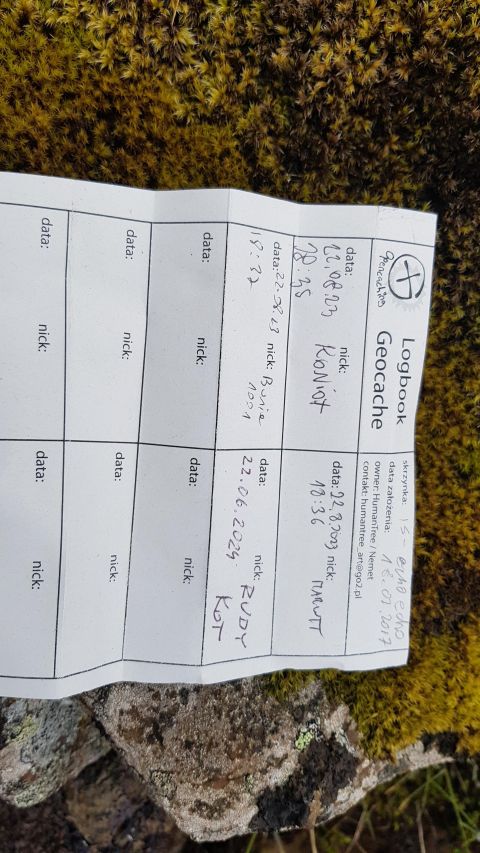 Geocaching
Logbook
Geocache
skrzynka: IS - echo echo
data założenia: 18.07.2017
owner: HumanTree / Nemet
contakt: humantree_art@go2.pl
data: 22.08.23 nick: KONIOT
18:35
data: 22.8.2023 nick: MARUTT
18:36
data: 22.08.23 nick: Busia
18:37 1001
data: nick: RUDY
22.06.2024 KOT
data: nick:
data: nick:
data: nick:
data: nick:
data: nick:
data: nick: